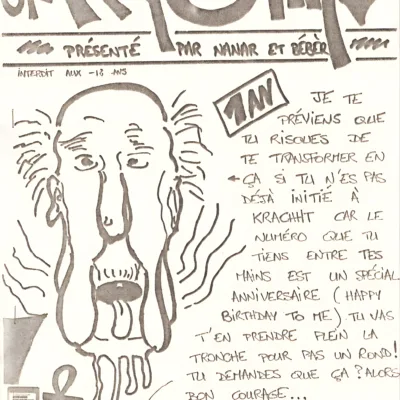 PRÉSENTÉ PAR NANAR ET BÉBÈR
INTERDIT AUX -18 ANS
1 AN
JE TE
PRÉVIENS QUE
TU RISQUES DE
TE TRANSFORMER EN
ÇA SI TU N'ES PAS
DÉJÀ INITIÉ À
KRACHHT CAR LE
NUMÉRO QUE TU
TIENS ENTRE TES
MAINS EST UN SPÉCIAL
ANNIVERSAIRE (HAPPY
BIRTHDAY TO ME). TU VAS
T'EN PRENDRE PLEIN LA
TRONCHE POUR PAS UN ROND!
TU DEMANDES QUE ÇA? ALORS
BON COURAGE...